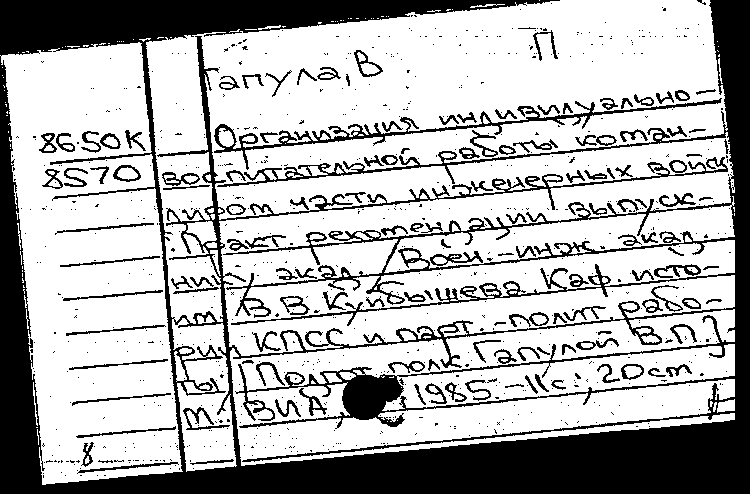 П
Гапула, В
86.50К Организация индивидуально-
8570 воспитательной работы коман-
диром части инженерных войск
: Практ. рекомендации выпуск-
нику акад. / Воен.-инж. акад.
им. В.В. Куйбышева. Каф. исто-
рии КПСС и парт.-полит. рабо-
ты; [Подгот. полк. Гапулой В.П.]
М.: ВИА, 1985.-11с.; 20см.
8